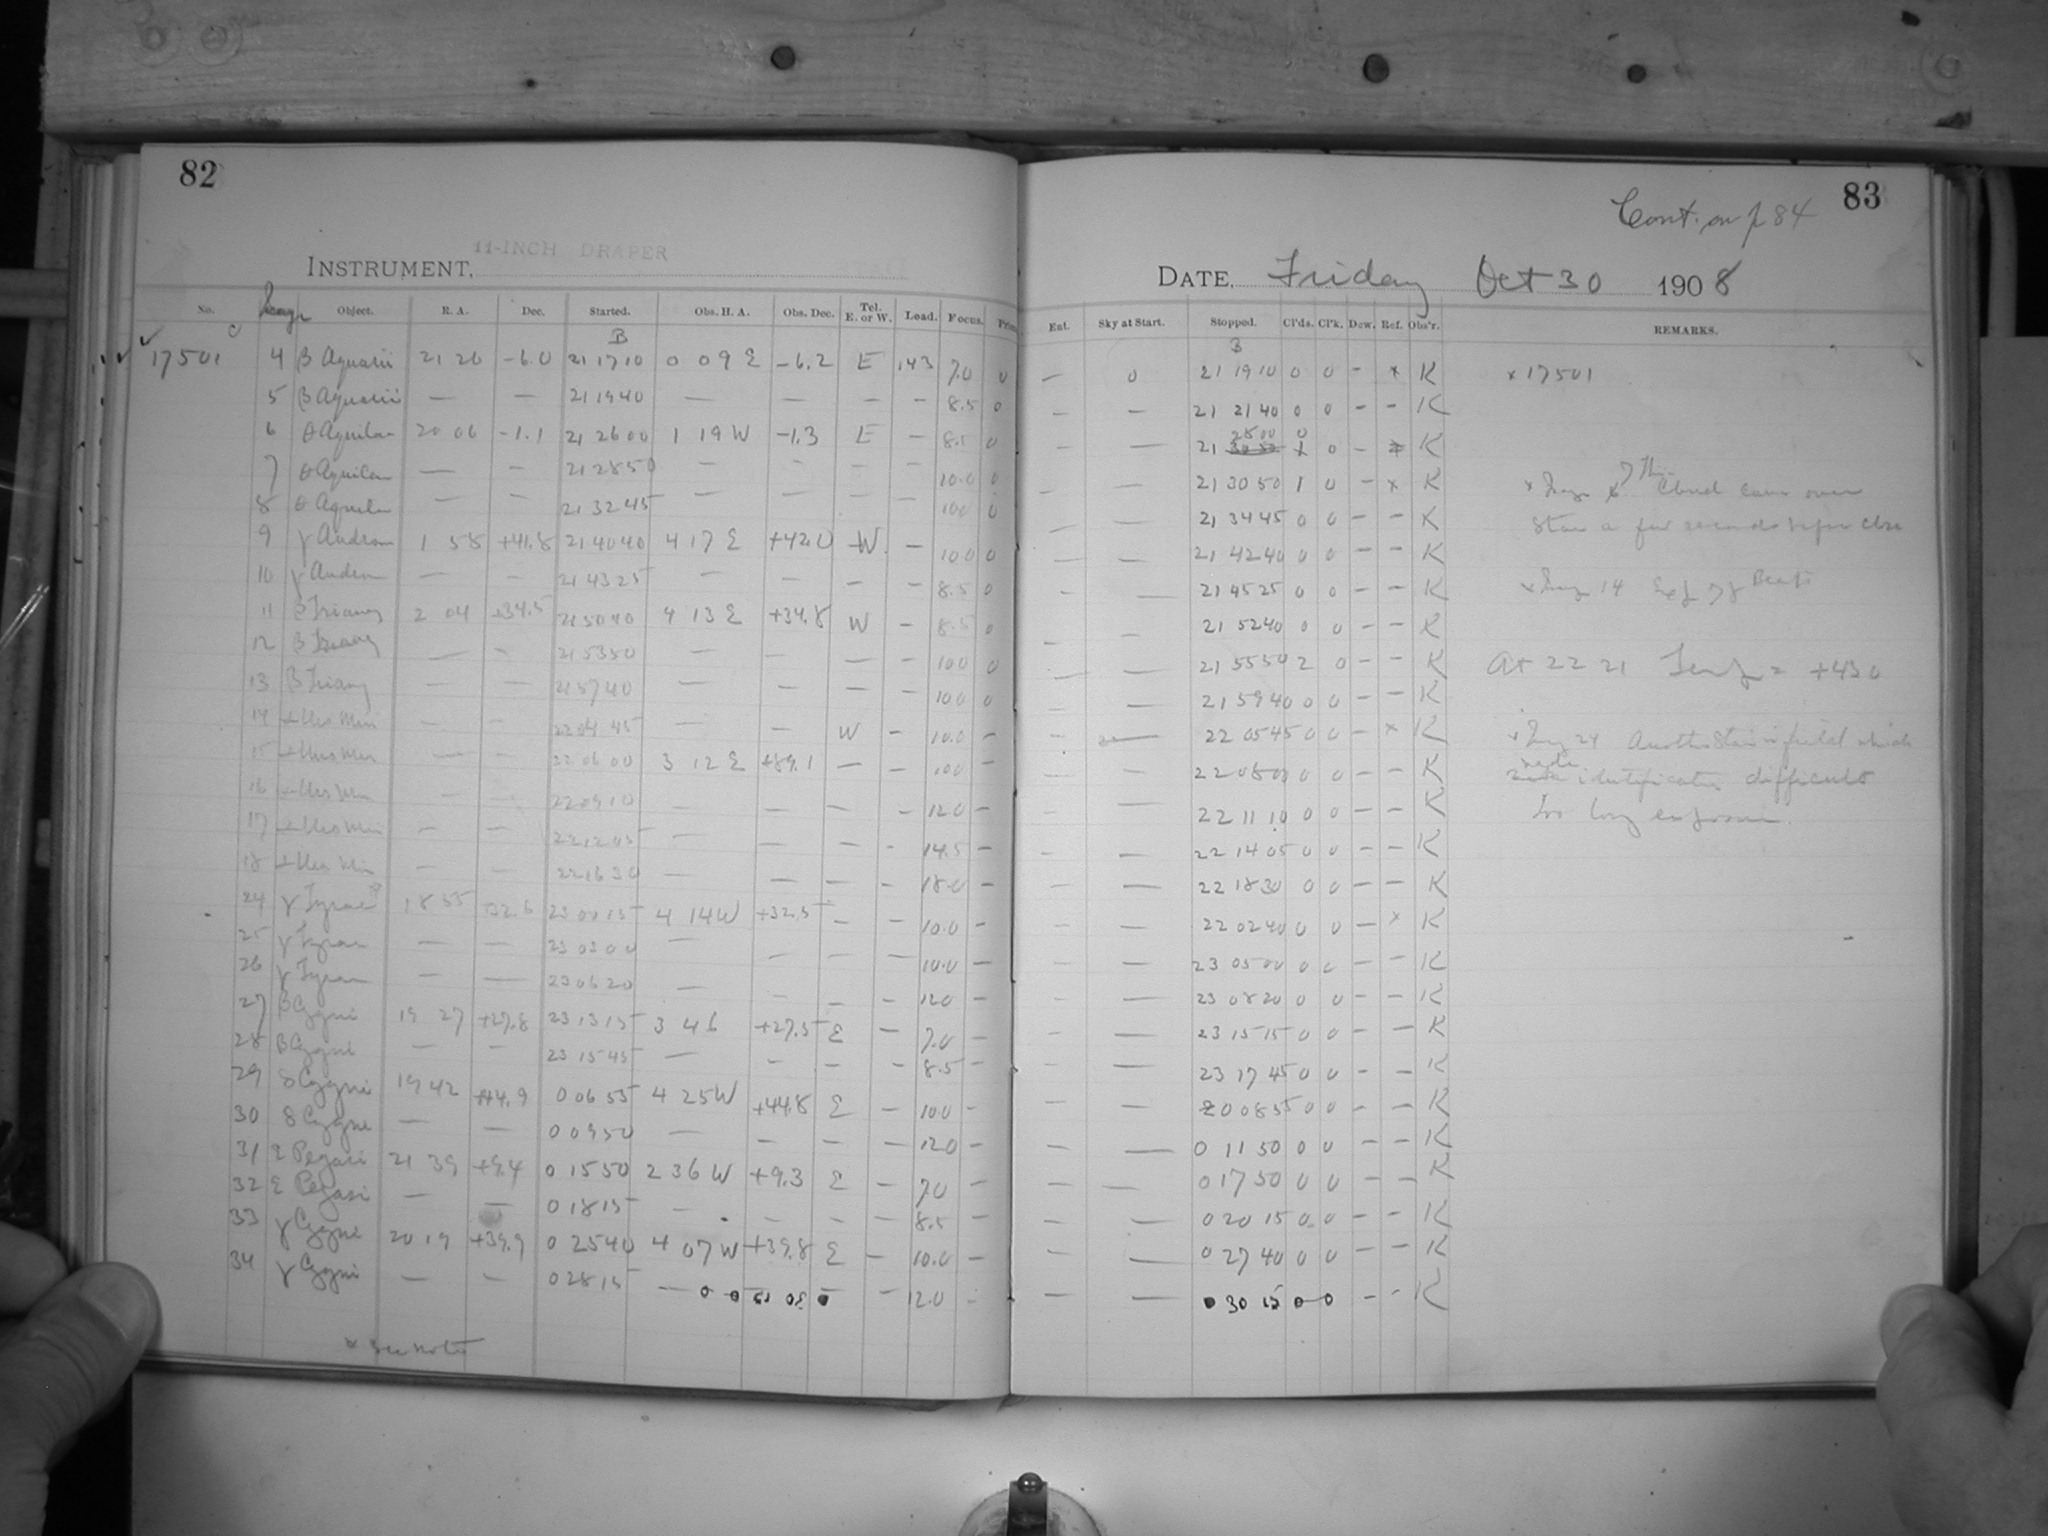 82
11-INCH DRAPER
INSTRUMENT,
No. Image Object. R. A. Dec. Started. Obs. H. A. Obs. Dec. Tel. E. or W. Load. Focus.
B
17501 4 β Aquarii 21 26 -6.0 21 17 10 0 09 E -6.2 E .43 7.0 0
5 β Aquarii — — 21 19 40 — — — — 8.5 0
6 θ Aquilae 20 06 -1.1 21 26 00 1 19 W -1.3 E — 8.5 0
7 θ Aquilae — — 21 28 50 — — — — 10.0 0
8 θ Aquilae — — 21 32 45 — — — — 10.0 0
9 γ Androm 1 58 +41.8 21 40 40 4 17 E +42.0 W — 10.0 0
10 γ Androm — — 21 43 25 — — — — 8.5 0
11 β Triang 2 04 +34.5 21 50 40 4 13 E +34.8 W — 8.5 0
12 β Triang — — 21 53 50 — — — — 10.0 0
13 β Triang — — 21 57 40 — — — — 10.0 0
14 Urs Min — — 22 04 45 — — W — 10.0 —
15 Urs Min — — 22 06 00 3 12 E +89.1 — — 10.0 —
16 Urs Min — — 22 09 10 — — — — 12.0 —
17 Urs Min — — 22 12 05 — — — — 14.5 —
18 Urs Min — — 22 16 30 — — — — 18.0 —
24 γ Lyrae 18 55 +32.6 23 00 15 4 14 W +32.5 — — 10.0 —
25 γ Lyrae — — 23 03 00 — — — — 10.0 —
26 γ Lyrae — — 23 06 20 — — — — 12.0 —
27 β Cygni 19 27 +27.8 23 13 15 3 46 +27.5 E — 7.0 —
28 β Cygni — — 23 15 45 — — — — 8.5 —
29 δ Cygni 19 42 +44.9 0 06 55 4 25 W +44.8 E — 10.0 —
30 δ Cygni — — 0 09 50 — — — — 12.0 —
31 ε Pegasi 21 39 +9.4 0 15 50 2 36 W +9.3 E — 7.0 —
32 ε Pegasi — — 0 18 15 — — — — 8.5 —
33 γ Cygni 20 19 +39.9 0 25 40 4 07 W +39.8 E — 10.0 —
34 γ Cygni — — 0 28 15 — — — — 12.0 —
x see note
83
Cont. on p 84
DATE, Friday Oct 30 1908
Ent. Sky at Start. Stopped. Cl'ds. Cl'k. Dew. Ref. Obs'r. REMARKS.
B
— 0 21 19 10 0 0 — x K x 17501
— — 21 21 40 0 0 — — K
28 00 0
— — 21 30 50 1 0 — x K
— — 21 30 50 1 0 — x K x Image 7 Thin Cloud came over
— — 21 34 45 0 0 — — K star a few seconds before close
— — 21 42 40 0 0 — — K
— — 21 45 25 0 0 — — K x Image 14
— — 21 52 40 0 0 — — K
— — 21 55 50 2 0 — — K At 22 21 Temp = +43 0
— — 21 59 40 0 0 — — K
— — 22 05 45 0 0 — x K x Image 24 Another star in field which
— — 22 08 00 0 0 — — K made identification difficult
— — 22 11 10 0 0 — — K Too long exposure.
— — 22 14 05 0 0 — — K
— — 22 18 30 0 0 — — K
— — 22 02 40 0 0 — x K
— — 23 05 00 0 0 — — K
— — 23 08 20 0 0 — — K
— — 23 15 15 0 0 — — K
— — 23 17 45 0 0 — — K
— — 0 08 55 0 0 — — K
— — 0 11 50 0 0 — — K
— — 0 17 50 0 0 — — K
— — 0 20 15 0 0 — — K
— — 0 27 40 0 0 — — K
— — 0 30 15 0 0 — — K